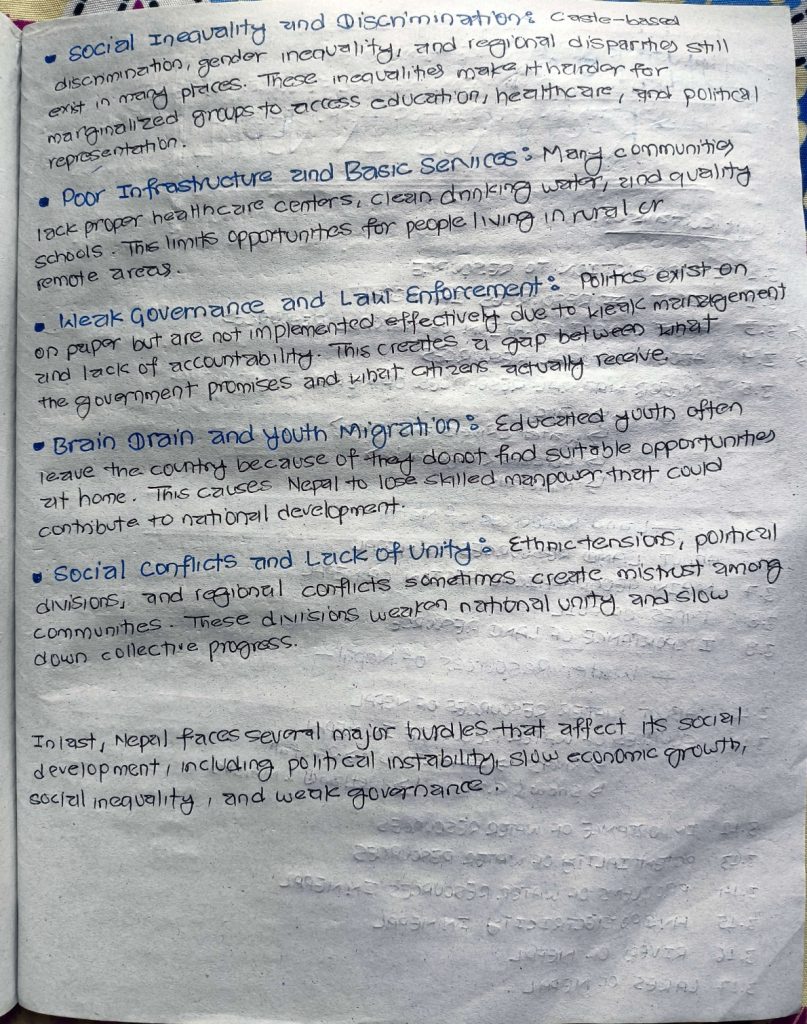 • Social Inequality and Discrimination: Caste-based
discrimination, gender inequality, and regional disparities still
exist in many places. These inequalities make it harder for
marginalized groups to access education, healthcare, and political
representation.
• Poor Infrastructure and Basic Services: Many communities
lack proper healthcare centers, clean drinking water, and quality
schools. This limits opportunities for people living in rural or
remote areas.
• Weak Governance and Law Enforcement: Politics exist on
on paper but are not implemented effectively due to weak management
and lack of accountability. This creates a gap between what
the government promises and what citizens actually receive.
• Brain Drain and Youth Migration: Educated youth often
leave the country because of they donot find suitable opportunities
at home. This causes Nepal to lose skilled manpower that could
contribute to national development.
• Social Conflicts and Lack of Unity: Ethnic tensions, political
divisions, and regional conflicts sometimes create mistrust among
communities. These divisions weaken national unity and slow
down collective progress.
In last, Nepal faces several major hurdles that affect its social
development, including political instability, slow economic growth,
social inequality, and weak governance.